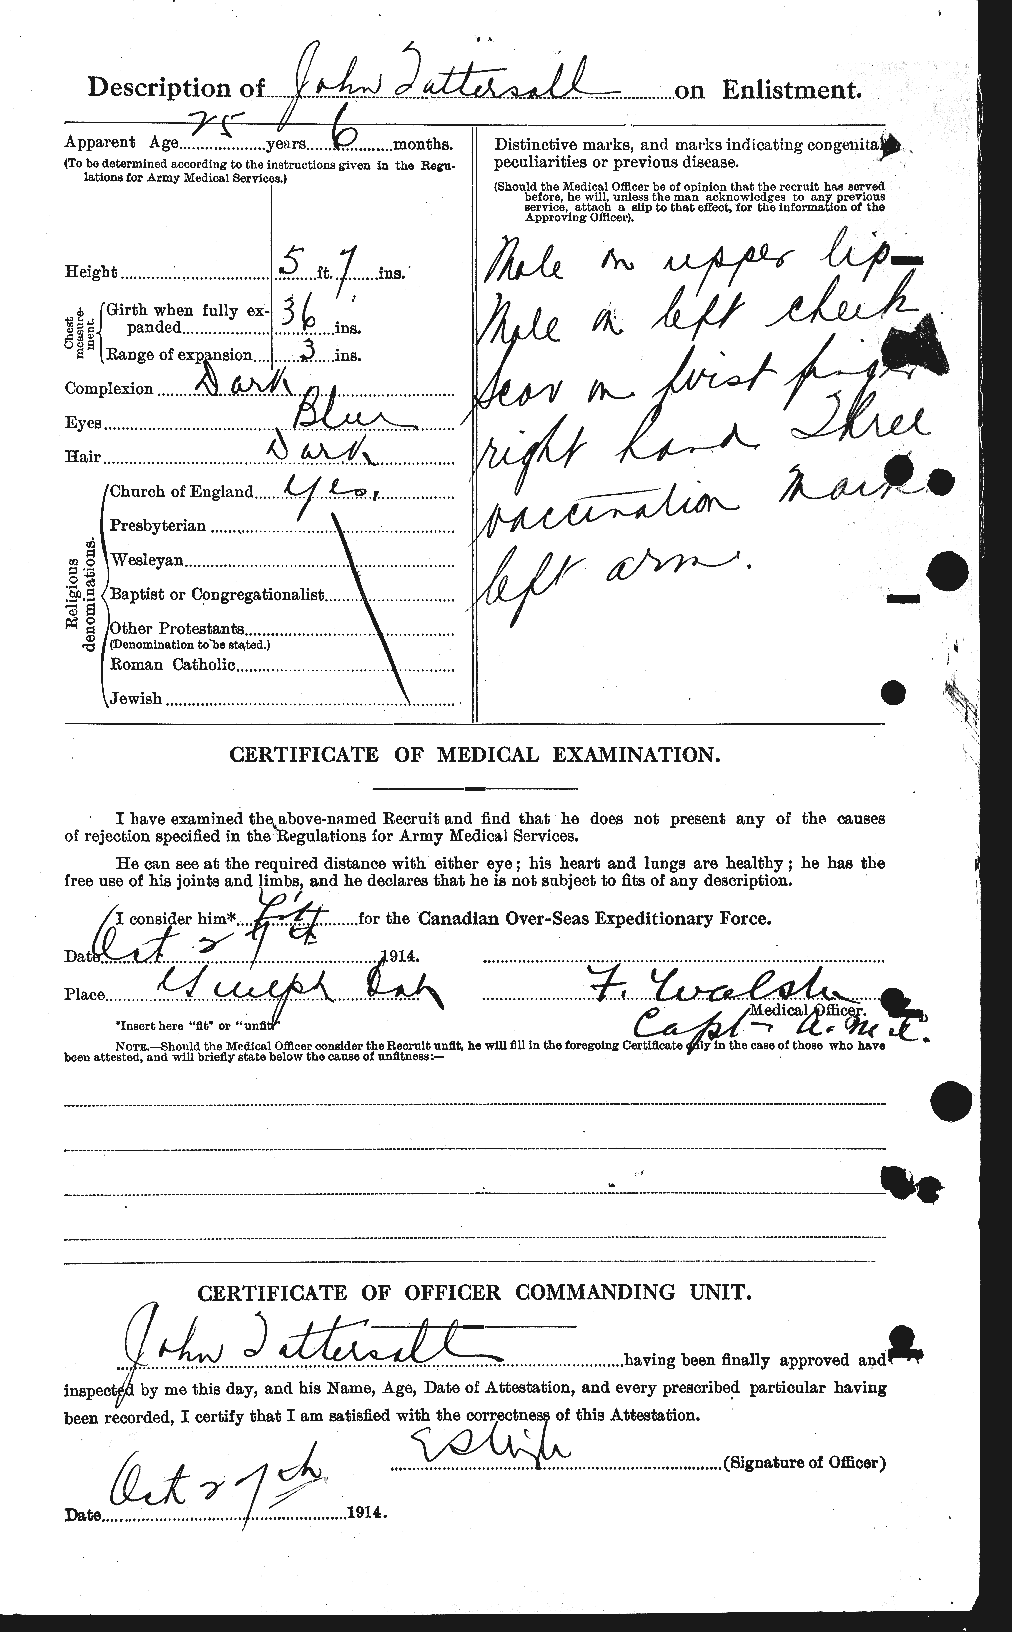 Description of John Tattersall on Enlistment.
Apparent Age 25 years 6 months.
(To be determined according to the instructions given in the Regu-
lations for Army Medical Services.)
Height 5 ft. 7 ins.
Chest measure-ment.
Girth when fully ex-
panded 36 ins.
Range of expansion 3 ins.
Complexion Dark
Eyes Blue
Hair Dark
Religious denominations.
Church of England Yes,
Presbyterian
Wesleyan
Baptist or Congregationalist
Other Protestants
(Denomination to be stated.)
Roman Catholic
Jewish
Distinctive marks, and marks indicating congenital
peculiarities or previous disease.
(Should the Medical Officer be of opinion that the recruit has served
before, he will, unless the man acknowledges to any previous
service, attach a slip to that effect, for the information of the
Approving Officer).
Mole on upper lip—
Mole on left cheek
Scar on first finger
right hand Three
vaccination mark
left arm.
CERTIFICATE OF MEDICAL EXAMINATION.
I have examined the above-named Recruit and find that he does not present any of the causes
of rejection specified in the Regulations for Army Medical Services.
He can see at the required distance with either eye; his heart and lungs are healthy; he has the
free use of his joints and limbs, and he declares that he is not subject to fits of any description.
I consider him* Fit for the Canadian Over-Seas Expeditionary Force.
Date Oct 27th 1914.
Place Guelph Ont
F. Walsh
Medical Officer.
Capt— A.M.C.
*Insert here "fit" or "unfit"
NOTE.—Should the Medical Officer consider the Recruit unfit, he will fill in the foregoing Certificate only in the case of those who have
been attested, and will briefly state below the cause of unfitness:—
CERTIFICATE OF OFFICER COMMANDING UNIT.
John Tattersall having been finally approved and
inspected by me this day, and his Name, Age, Date of Attestation, and every prescribed particular having
been recorded, I certify that I am satisfied with the correctness of this Attestation.
(Signature of Officer)
Date Oct 27th 1914.